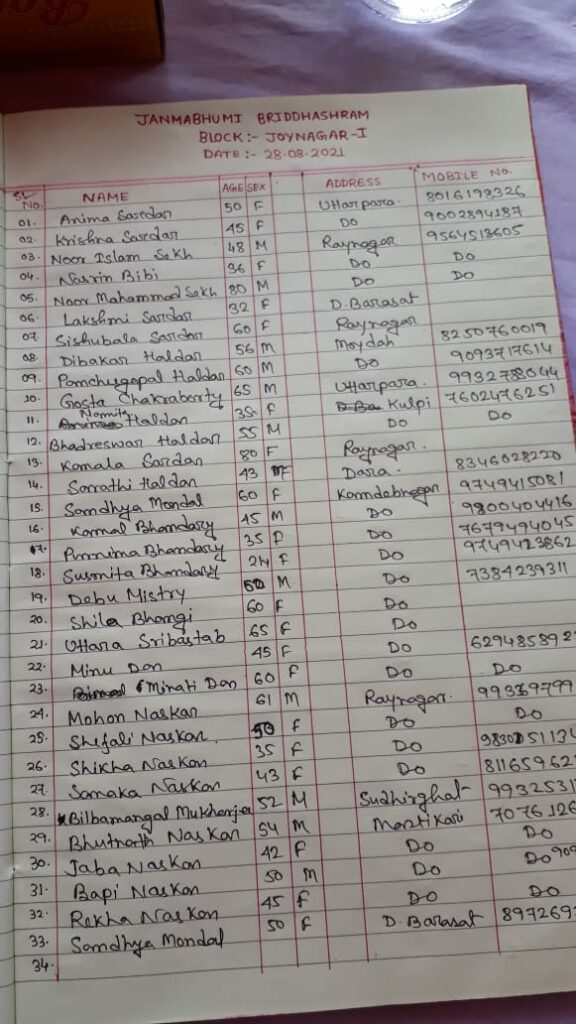 JANMABHUMI BRIDDHASHRAM
BLOCK:- JOYNAGAR-I
DATE:- 28.08.2021
SL NO. NAME AGE SEX ADDRESS MOBILE NO.
01. Anima Sardar 50 F Uttarpara. 8016198326
02. Krishna Sardar 45 F Do 9002894187
03. Noor Islam Sekh 48 M Raynagar 9564513605
04. Nasrin Bibi 36 F Do Do
05. Noor Mahammad Sekh 80 M Do Do
06. Lakshmi Sardar 32 F D. Barasat
07. Sishubala Sardar 60 F Raynagar
08. Dibakar Haldar 56 M Moydah 8250760019
09. Panchugopal Haldar 60 M Do 9093717614
10. Gosta Chakraborty 65 M Uttarpara. 9932788044
11. Namita Haldar 35 F Kulpi 7602476251
12. Bhadreswar Haldar 55 M Do Do
13. Kamala Sardar 80 F Raynagar.
14. Sarathi Haldar 43 F Dara. 8346028220
15. Sandhya Mondal 60 F 9749415081
16. Kamal Bhandary 45 M Do 9800404416
17. Purnima Bhandary 35 Do 7679494045
18. Susmita Bhandary 24 F Do 9749423862
19. Debu Mistry M Do 7384239311
20. Shila Bhangi 60 F Do
21. Uttara Sribastab 65 F Do
22. Minu Dan 45 F Do 629485892
23. Minati Dan 60 F Do Do
24. Mohon Naskar 61 M Raynagar.
25. Shefali Naskar. 50 F Do Do
26. Shikha Naskar 35 F Do
27. Sanaka Naskar 43 F Do 81165962
28. Bilbamangal Mukherjee 52 M 9932531
29. Bhutnath Naskar 54 M 7076126
30. Jaba Naskar 42 F Do Do
31. Bapi Naskar 50 M Do Do 909
32. Rekha Naskar 45 F Do Do
33. Sandhya Mondal 50 F D. Barasat 897269
34.